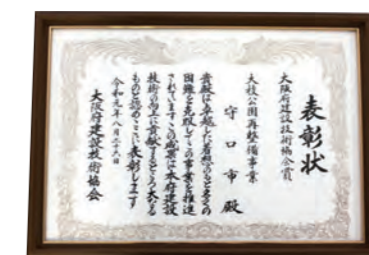 表彰状
大阪府建設技術協会賞
大枝公園再整備事業
守口市殿
貴職は卓越した着想のもと多くの
困難を克服してこの事業を推進
されていますこの成果は本府建設
技術の向上に貢献するところ大なる
ものと認めここに表彰します
令和元年八月二十六日
大阪府建設技術協会